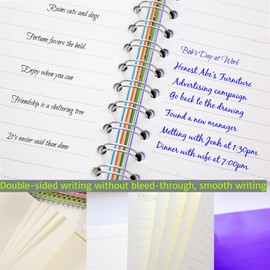 Rains cats and dogs
Fortune favors the bold.
Enjoy when you can
Friendship is a sheltering tree
It's never said than done
Bob's Day at Work
Honest Abe's Furniture
Advertising campaign
Go back to the drawing
Found a new manager
Metting with Jonh at 1:30pm
Dinner with wife at 7:00pm
Double-sided writing without bleed-through, smooth writing